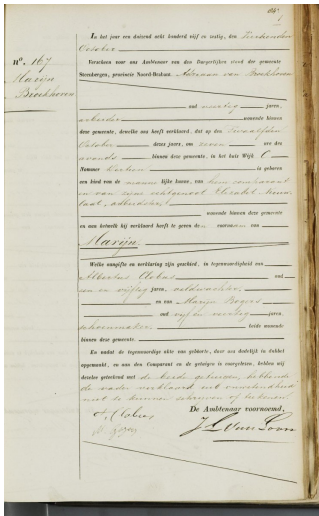 In het jaar een duizend acht honderd vijf en zestig, den
October
Verscheen voor ons Ambtenaar van den Burgerlijken stand der gemeente
Steenbergen, provincie Noord-Braband, Adriaan van Broekhoven
n°. 167
Marijn
Broekhoven
oud veertig jaren,
arbeider wonende binnen
deze gemeente, dewelke ons heeft verklaard, dat op den
October dezes jaars, om zeven ure des
avonds binnen deze gemeente, in het huis Wijk C
Nummer is geboren
een kind van de mannelijke kunne, van hem comparant
en van zijne echtgenoot
arbeidster
wonende binnen deze gemeente
en aan hetwelk hij verklaard heeft te geven den voornaam van
Marijn
Welke aangifte en verklaring zijn geschied, in tegenwoordigheid van
Albertus Clobus oud
een en vijftig jaren, veldwachter
en van Marijn Bogers
oud vijf en veertig jaren,
schoenmaker beide wonende
binnen deze gemeente.
En nadat de tegenwoordige akte van geboorte, daar van dadelijk in dubbel
opgemaakt, en aan den Comparant en de getuigen is voorgelezen, hebben wij
dezelve geteekend met de beide getuigen, hebbende
de vader verklaard uit onwetendheid
niet te kunnen schrijven of teekenen.
De Ambtenaar voornoemd,
A. Clobus
M. Bogers
van Loon